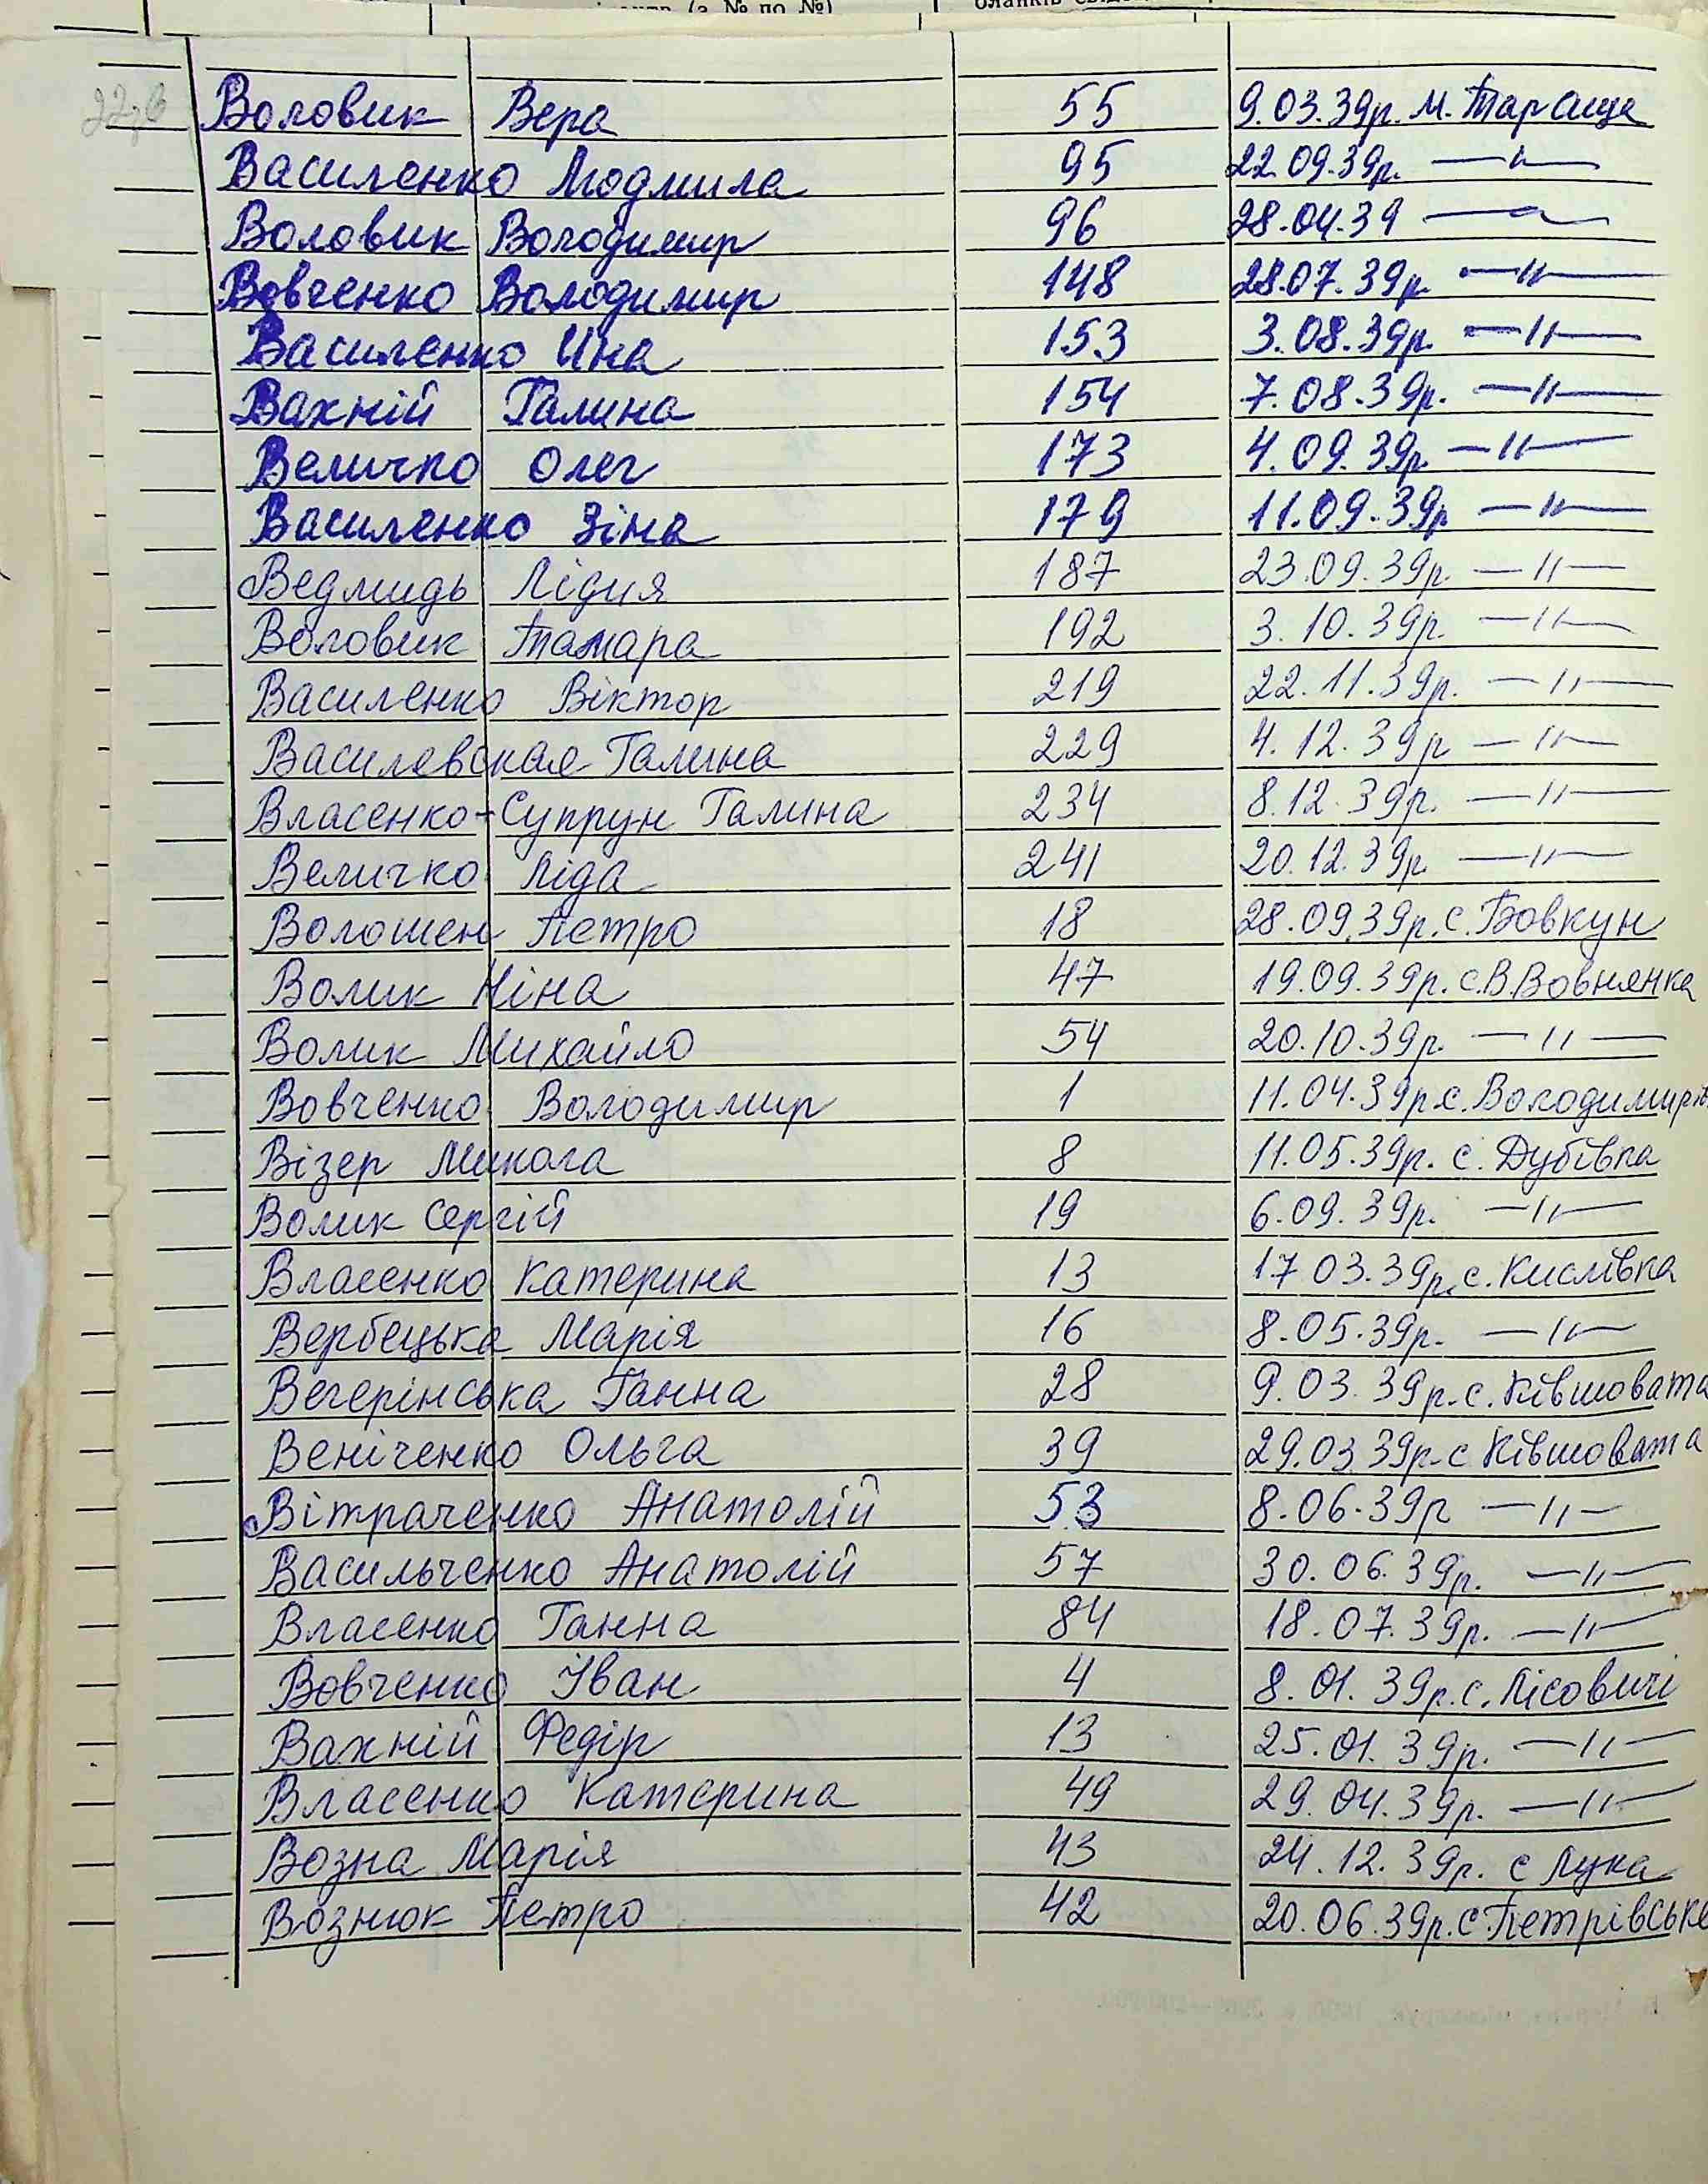 (з № по №)
Воловик Вера 55 9.03.39р. м. Тараща
Василенко Людмила 95 22.09.39р. —"—
Воловик Володимир 96 28.04.39 —"—
Вовченко Володимир 148 28.07.39р. —"—
Василенко Инa 153 3.08.39р. —"—
Вахній Галина 154 7.08.39р. —"—
Величко Олег 173 4.09.39р. —"—
Василенко Зіна 179 11.09.39р —"—
Ведмидь Лідия 187 23.09.39р. —"—
Воловик Тамара 192 3.10.39р. —"—
Василенко Віктор 219 22.11.39р. —"—
Василевская Галина 229 4.12.39р —"—
Власенко-Супрун Галина 234 8.12.39р. —"—
Величко Ліда 241 20.12.39р. —"—
Волошен Петро 18 28.09.39р. с. Бовкун
Волик Ніна 47 19.09.39р. с. В. Вовнянка
Волик Михайло 54 20.10.39р. —"—
Вовченко Володимир 1 11.04.39р. с. Володимирів
Візер Микола 8 11.05.39р. с. Дубівка
Волик Сергій 19 6.09.39р. —"—
Власенко Катерина 13 17 03.39р. с. Кислівка
Вербецька Марія 16 8.05.39р. —"—
Вегерінська Ганна 28 9.03.39р. с. Ківшовата
Веніченко Ольга 39 29.03 39р. с Ківшовата
Вітраченко Анатолій 53 8.06.39р —"—
Васильченко Анатолій 57 30.06.39р. —"—
Власенко Ганна 84 18.07.39р. —"—
Вовченко Іван 4 8.01.39р. с. Лісовичі
Вахній Федір 13 25.01.39р. —"—
Власенко Катерина 49 29.04.39р. —"—
Возна Марія 43 24.12.39р. с Лука
Вознюк Петро 42 20.06.39р. с Петрівське